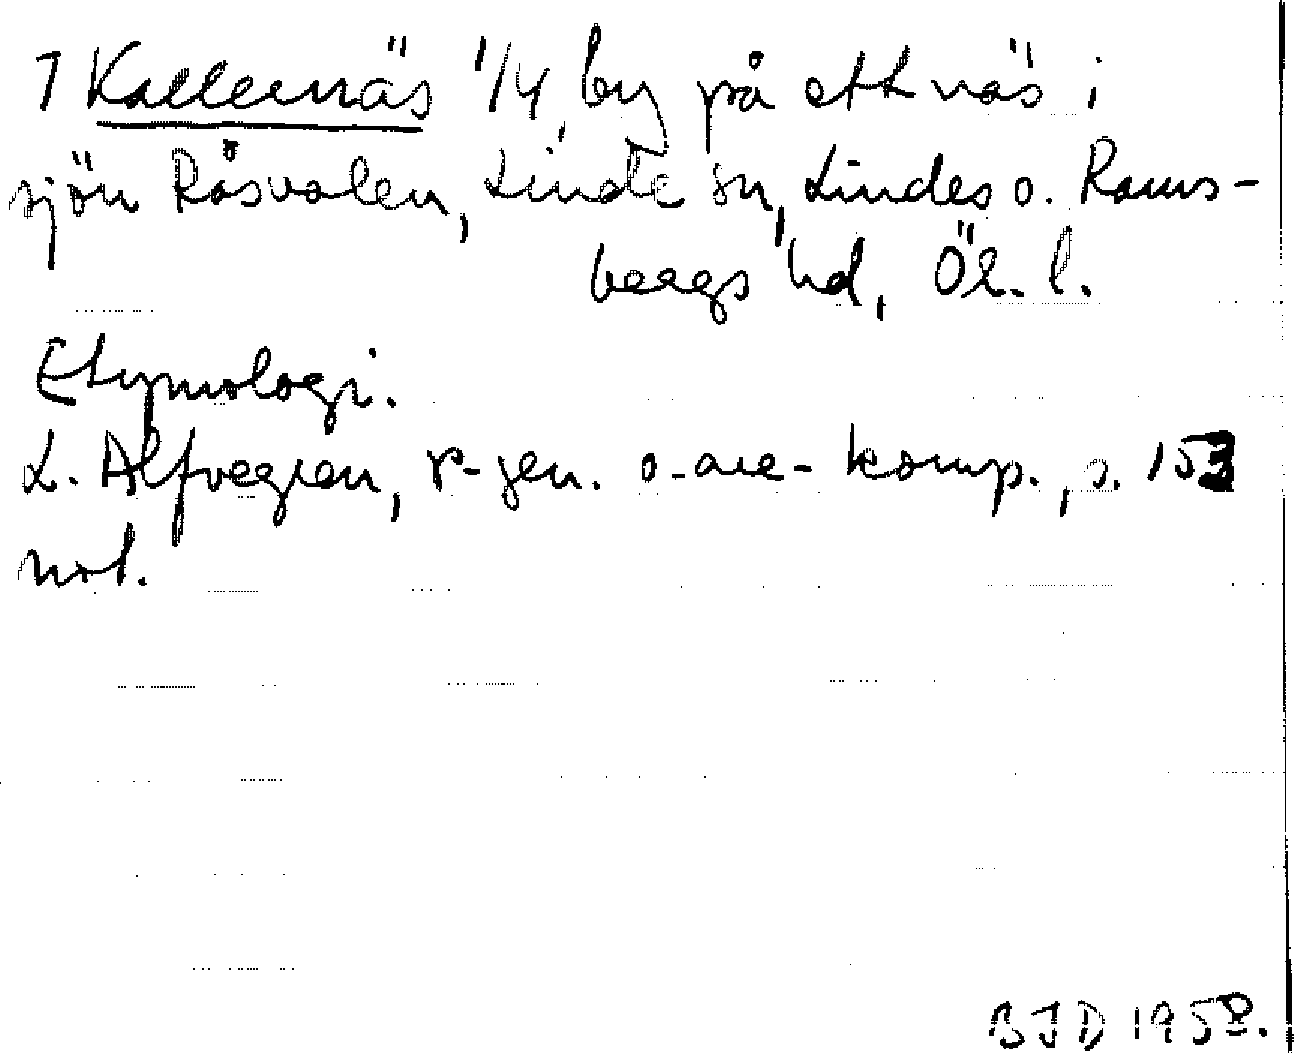 1 Kallernäs 1/4, by på ett näs i
sjön Råsvalen, Linde sn, Lindes o. Rams-
bergs hd, Ör. l.
Etymologi.
L. Alfvegren, r-gen. o. are-komp., s. 153
not.
BJD 1958.